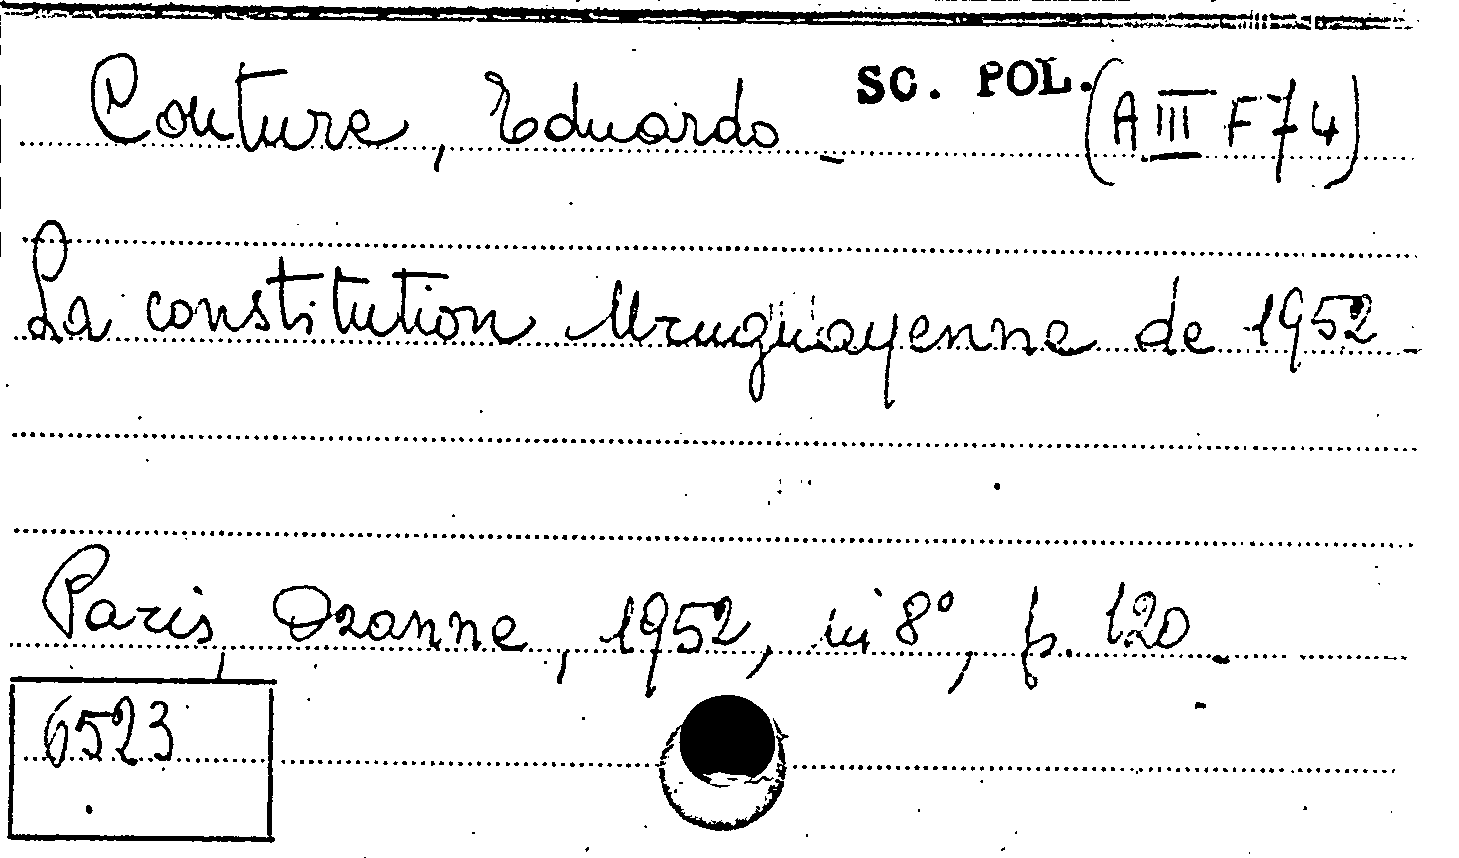 Couture, Eduardo - SC. POL. (A III F 74)
La constitution Uruguayenne de 1952 -
Paris, Ozanne, 1952, in 8°, p. 120 -
6523